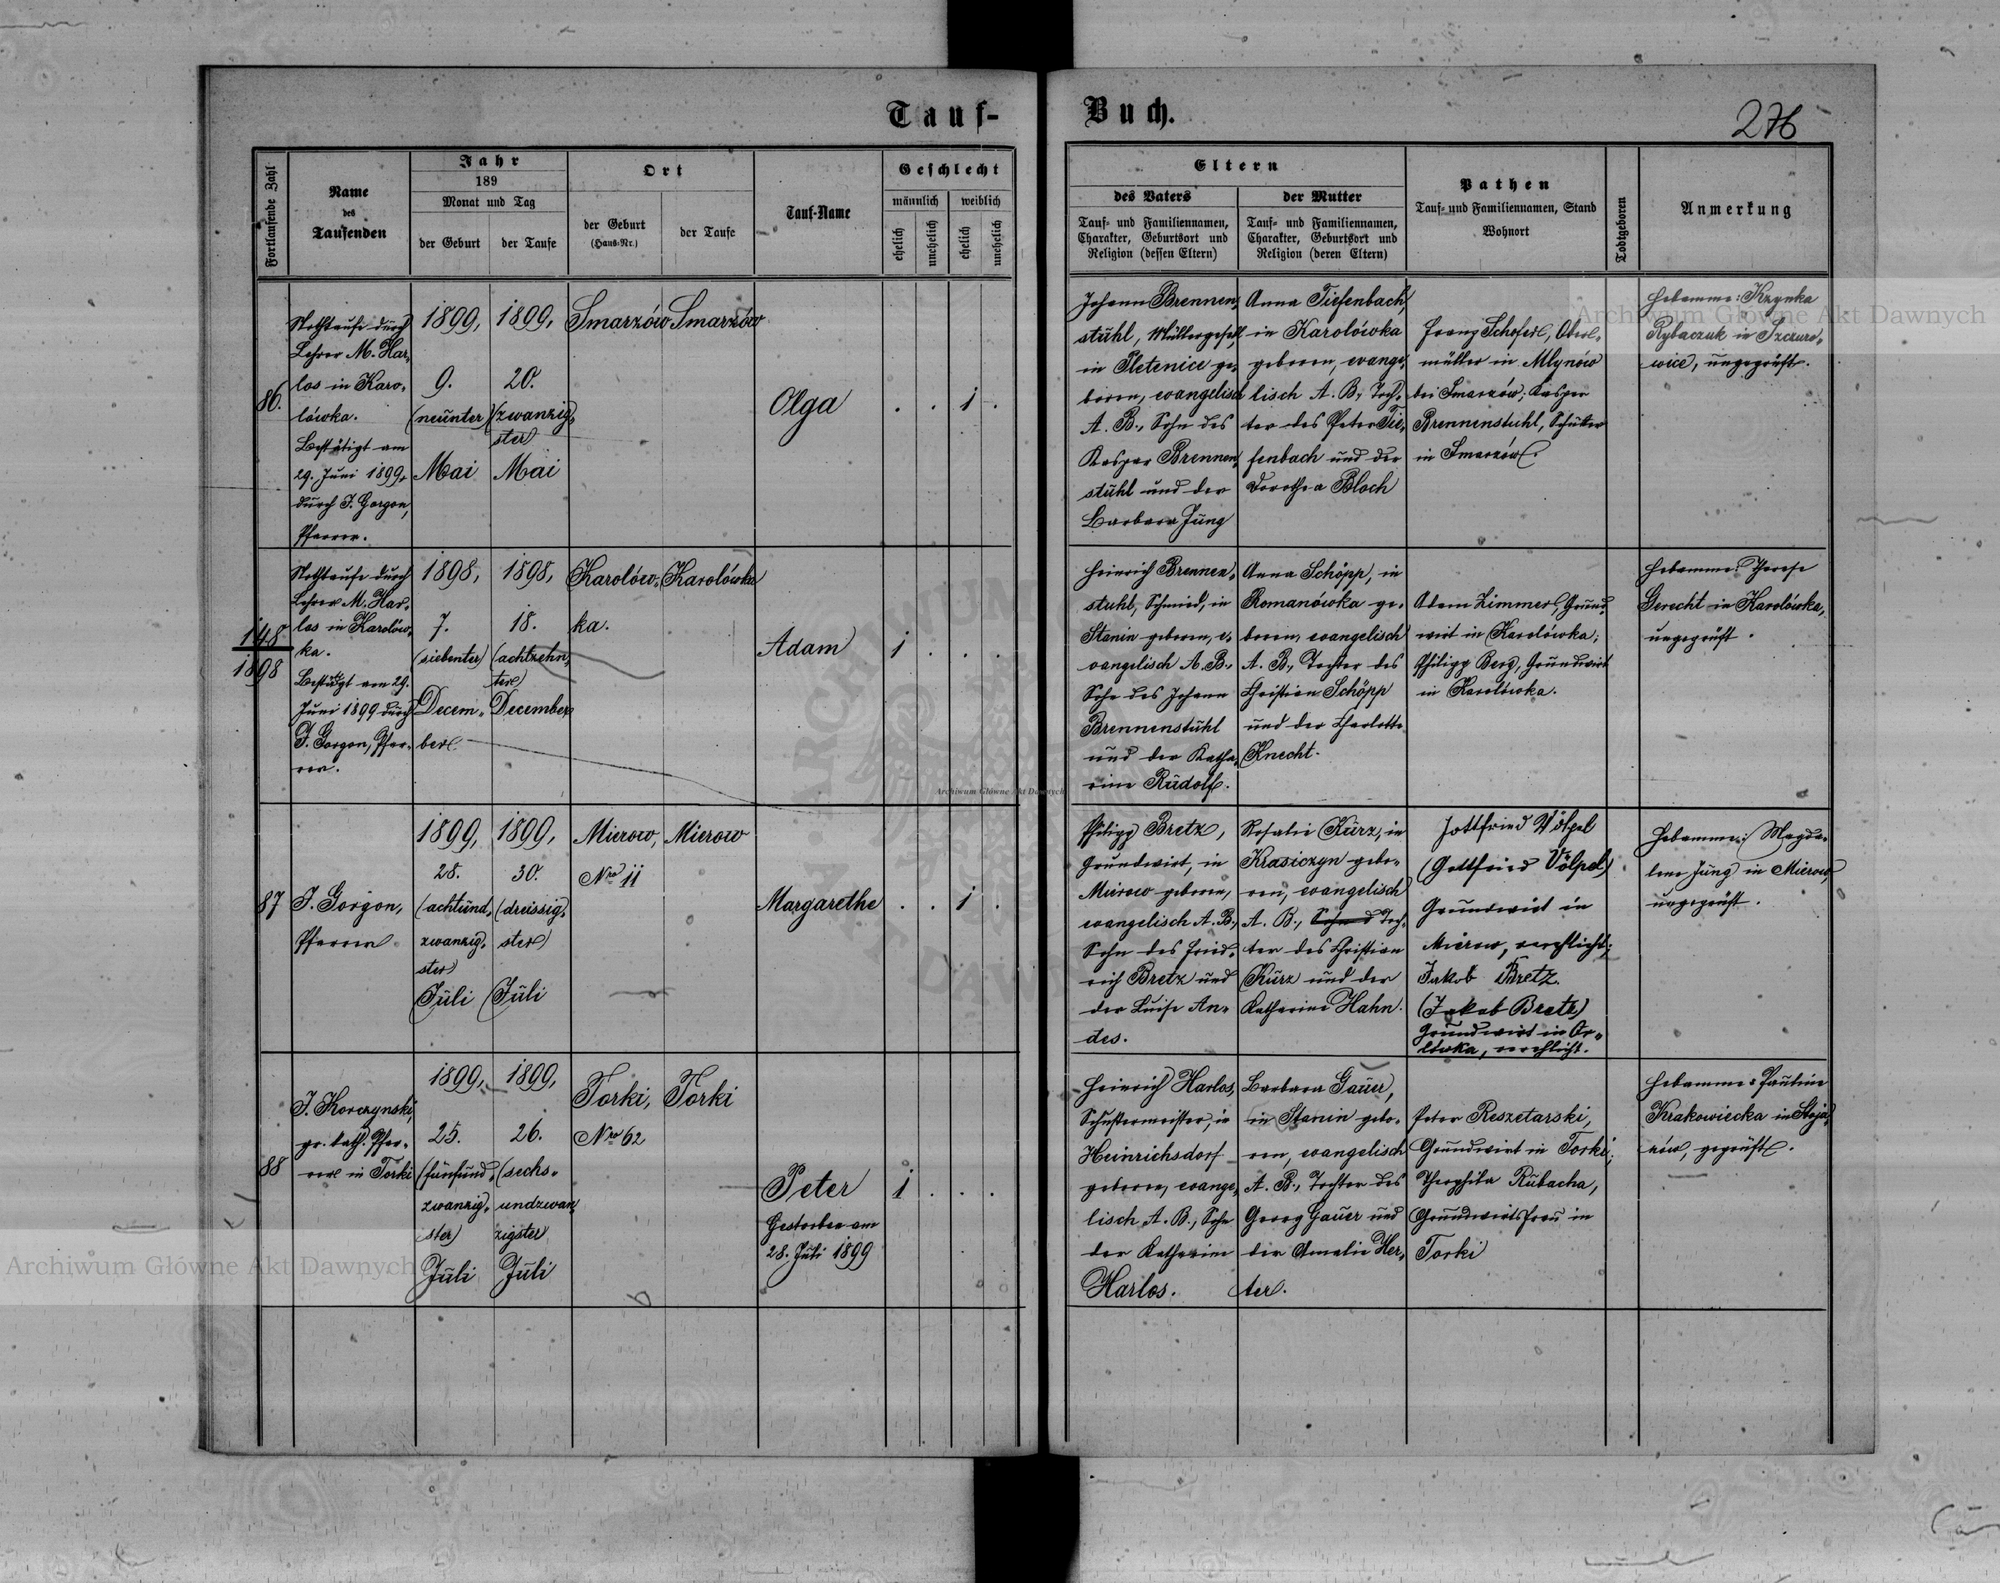 Tauf-
Buch.
276
Fortlaufende Zahl
Name
des
Taufenden
Jahr
189
Monat und Tag
der Geburt
der Taufe
Ort
der Geburt
(Haus-Nr.)
der Taufe
Tauf-Name
Geschlecht
männlich
weiblich
ehelich
unehelich
ehelich
unehelich
Eltern
des Vaters
Tauf- und Familiennamen,
Charakter, Geburtsort und
Religion (dessen Eltern)
der Mutter
Tauf- und Familiennamen,
Charakter, Geburtsort und
Religion (deren Eltern)
Pathen
Tauf- und Familiennamen, Stand
Wohnort
Todtgeboren
Anmerkung
86.
Nothtaufe durch
Lehrer M. Har-
los in Karo-
lówka.
Bestätigt am
29. Juni 1899
durch J. Gorgon,
Pfarrer.
1899,
9.
(neunter)
Mai
1899,
20.
(zwanzig-
ster)
Mai
Smarzów
Smarzów
Olga
. . 1 .
Johann Brennen-
stuhl, Müllergesell,
in Sletenice ge-
boren, evangelisch
A. B., Sohn des
Kaspar Brennen-
stuhl und der
Barbara Jung
Anna Tiefenbach,
in Karolówka
geboren, evange-
lisch A. B., Toch-
ter des Peter Tie-
fenbach und der
Dorothea Bloch
Franz Schoferl, Ober-
müller in Mlynów
bei Smarzów; Kaspar
Brennenstuhl, Schüler
in Smarzów.
Hebamme: Krzynka
Rybaczuk in Szczuro-
wice, ungeprüft.
148
1898
Nothtaufe durch
Lehrer M. Har-
los in Karolów-
ka.
Bestätigt am 29.
Juni 1899 durch
J. Gorgon, Pfar-
rer.
1898,
7.
(siebenter)
Decem-
ber
1898,
18.
(achtzehn-
ter)
December
Karolów-
ka.
Karolówka
Adam
1 . . .
Heinrich Brennen-
stuhl, Schmied, in
Stanin geboren, e-
vangelisch A. B.,
Sohn des Johann
Brennenstuhl
und der Katha-
rine Rudolf.
Anna Schöpp, in
Romanówka ge-
boren, evangelisch
A. B., Tochter des
Christian Schöpp
und der Charlotte
Knecht.
Adam Zimmer, Grund-
wirt in Karolówka;
Philipp Berg, Grundwirt
in Karolówka.
Hebamme: Therese
Gerecht in Karolówka,
ungeprüft.
87
J. Gorgon,
Pfarrer
1899,
28.
(achtund-
zwanzig-
ster)
Juli
1899,
30.
(dreissig-
ster)
Juli
Mierow,
Nro 11
Mierow
Margarethe
. . 1 .
Philipp Bretz,
Grundwirt, in
Mierow geboren,
evangelisch A. B.,
Sohn des Fried-
rich Bretz und
der Luise An-
des.
Rosalie Kurz, in
Krasiczyn gebo-
ren, evangelisch
A. B., Sohn d Toch-
ter des Christian
Kurz und der
Katharine Hahn.
Gottfried Völpel
(Gottfried Völpel)
Grundwirt in
Mierow, verehlicht;
Jakob Bretz.
(Jakob Bretz)
Grundwirt in Or-
lówka, verehlicht.
Hebamme: Magda-
lene Jung in Mierow,
ungeprüft.
88
J. Korczynski,
gr. kath. Pfar-
rer in Torki
1899,
25.
(fünfund-
zwanzig-
ster)
Juli
1899,
26.
(sechs-
undzwan-
zigster
Juli
Torki,
Nro 62
Torki
Peter
Gestorben am
28. Juli 1899
1 . . .
Heinrich Harlos,
Schustermeister, in
Heinrichsdorf
geboren, evange-
lisch A. B., Sohn
der Katharine
Harlos.
Barbara Gauer,
in Stanin gebo-
ren, evangelisch
A. B., Tochter des
Georg Gauer und
der Amalie Her-
ter.
Peter Reszetarski,
Grundwirt in Torki;
Theophila Rubacha,
Grundwirtsfrau in
Torki
Hebamme: Pauline
Krakowiecka in Stoja-
nów, geprüft.
Archiwum Główne Akt Dawnych
Archiwum Główne Akt Dawnych
Archiwum Główne Akt Dawnych